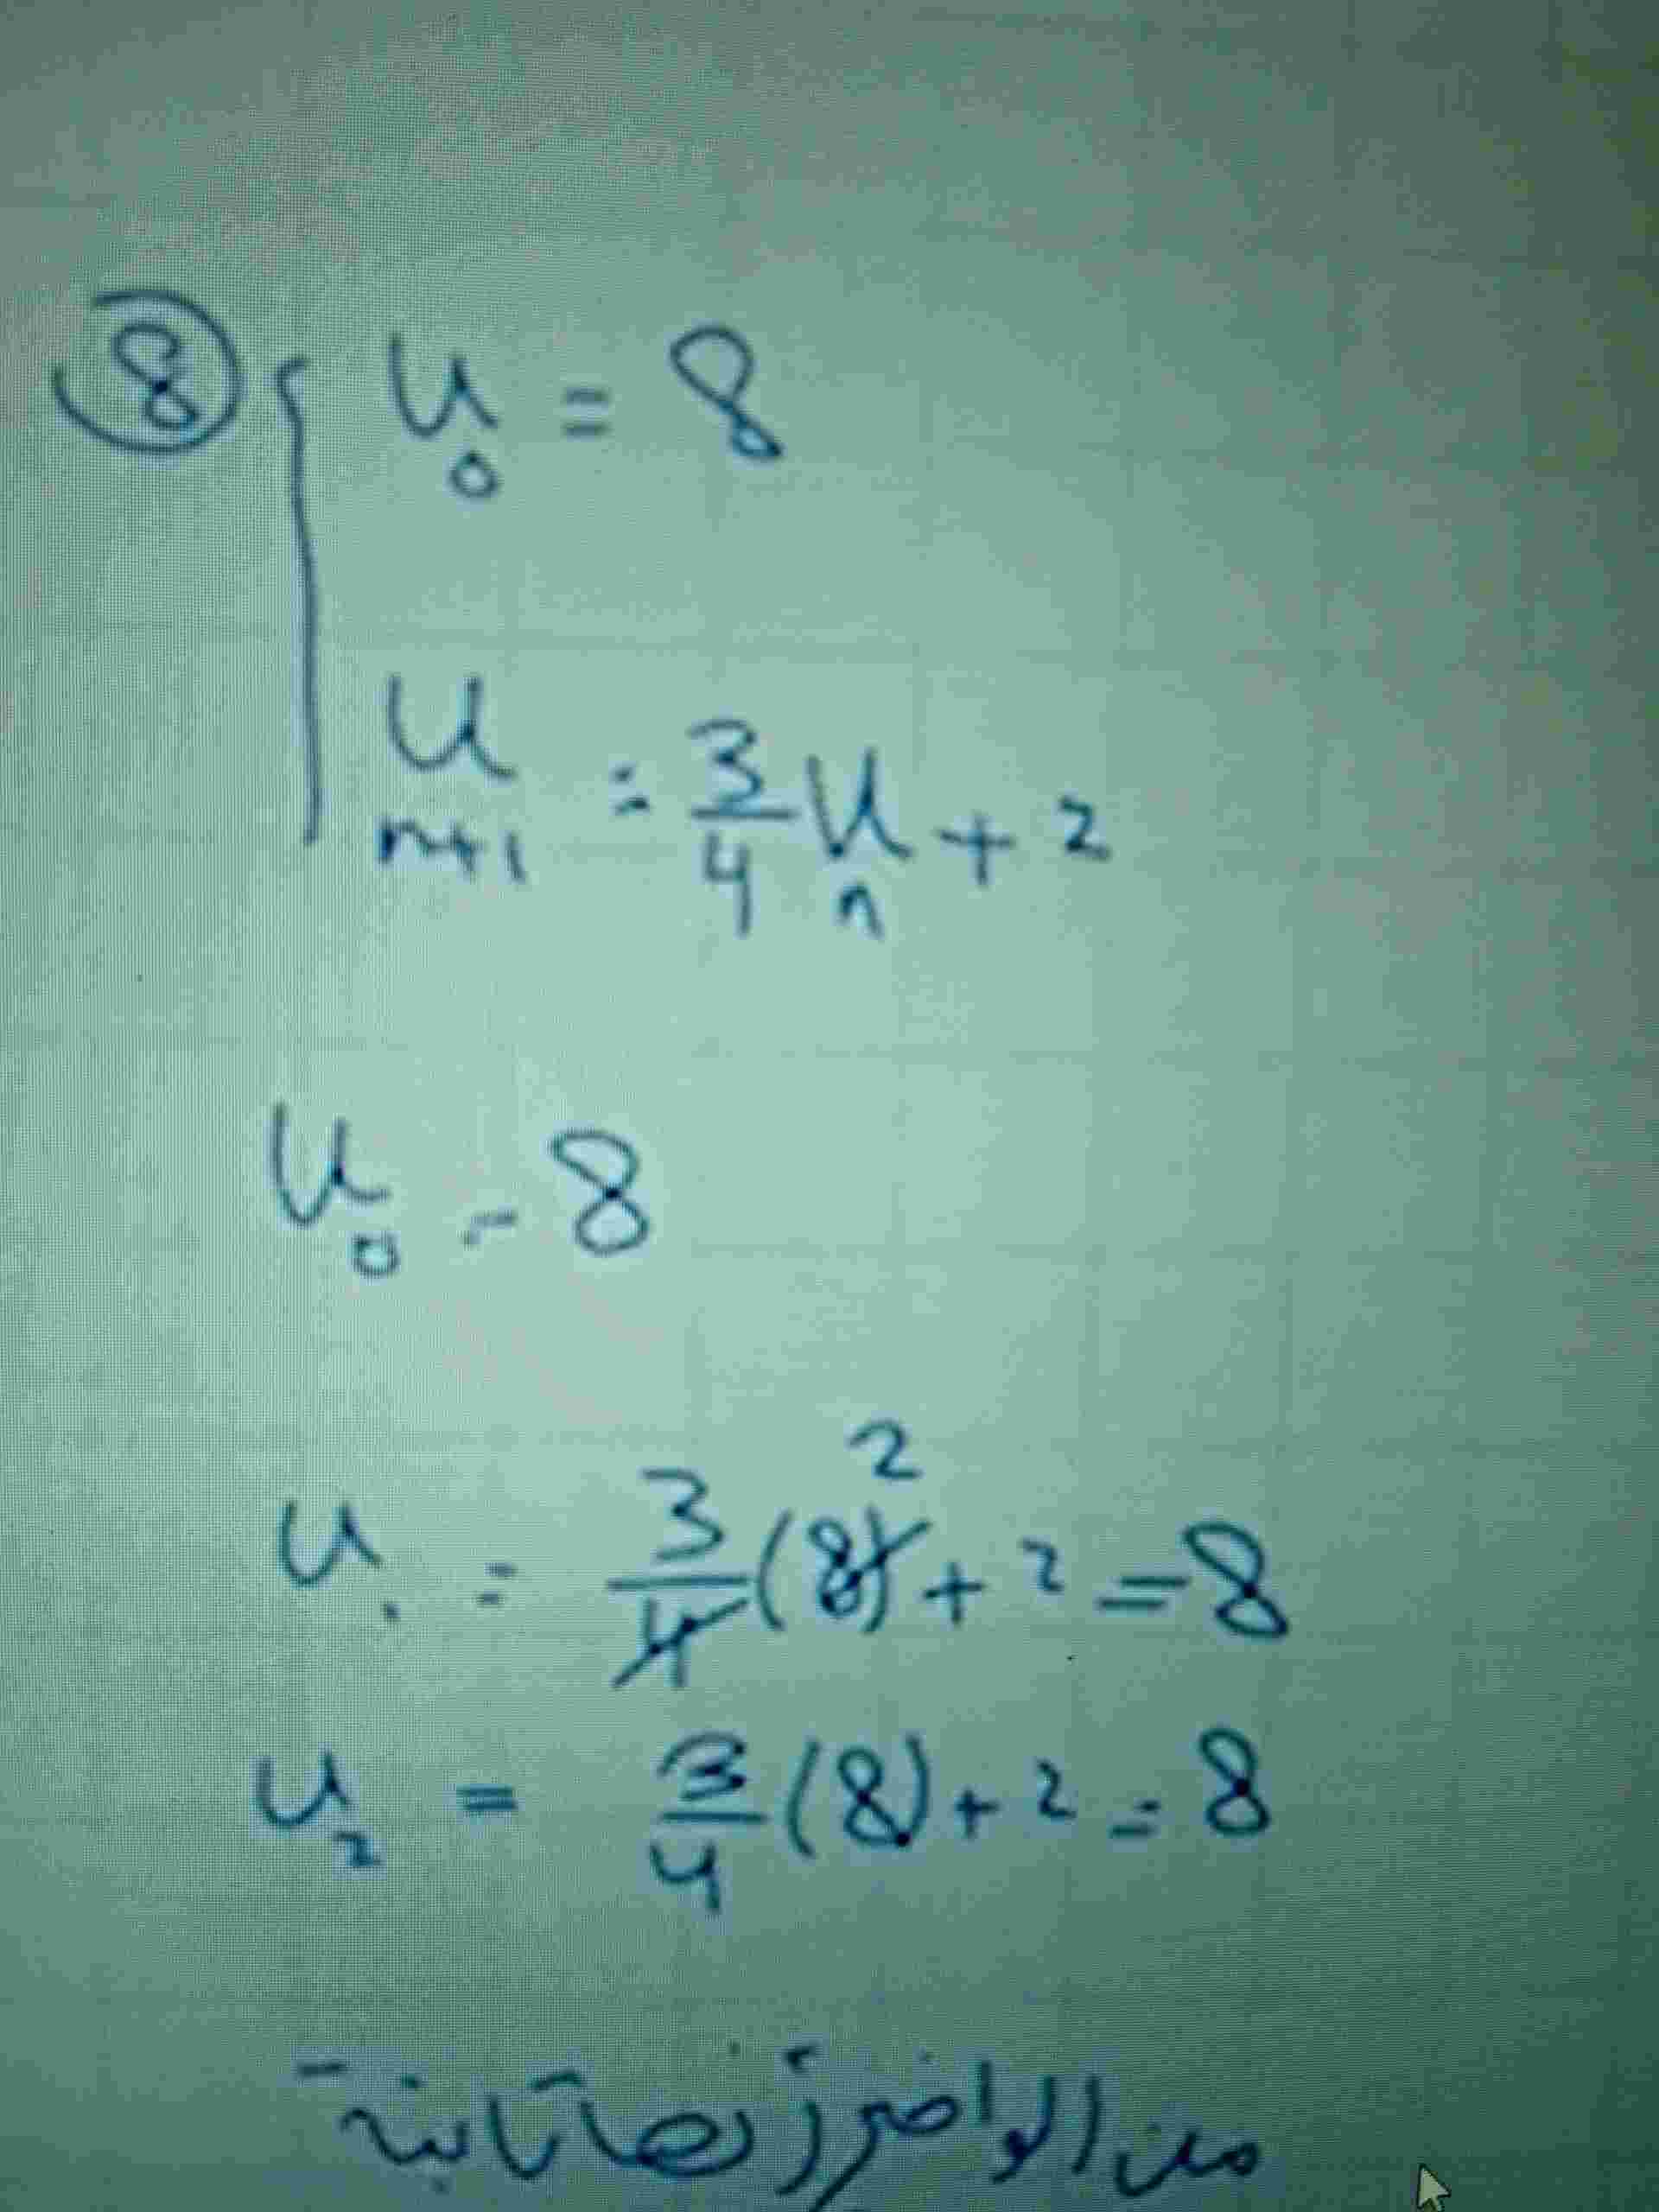 ⑧ { u₀ = 8
u_{n+1} = 3/4 u_n + 2
u₀ = 8
u₁ = 3/4 (8) 2 + 2 = 8
u₂ = 3/4 (8) + 2 = 8
من الواضح أنها ثابتة